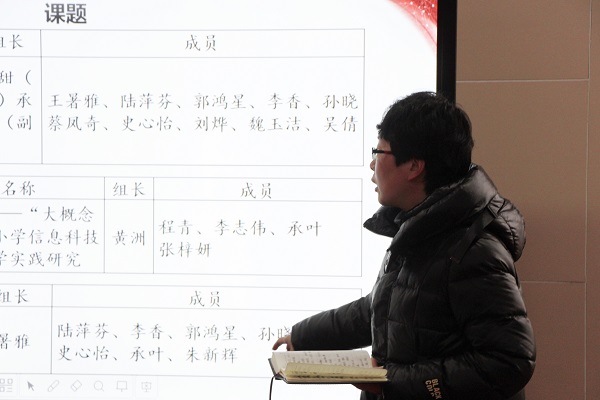 课题
组长 成员
甜（
）承
（副
王暑雅、陆萍芬、郭鸿星、李香、孙晓
蔡凤奇、史心怡、刘烨、魏玉洁、吴倩
名称 组长 成员
——“大概念
小学信息科技
学实践研究
黄洲
程青、李志伟、承叶
张梓妍
组长 成员
暑雅
陆萍芬、李香、郭鸿星、孙晓
史心怡、承叶、朱新辉
BLACK